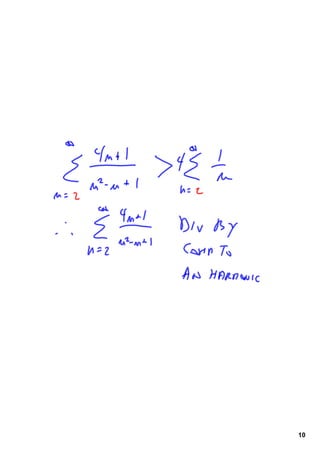 ∞ ∑ n=2 (4n+1)/(n²-n+1) > 4 ∞ ∑ n=2 1/n
∴ ∞ ∑ n=2 (4n+1)/(n²-n+1) DIV BY
COMP TO
AN HARMONIC
10